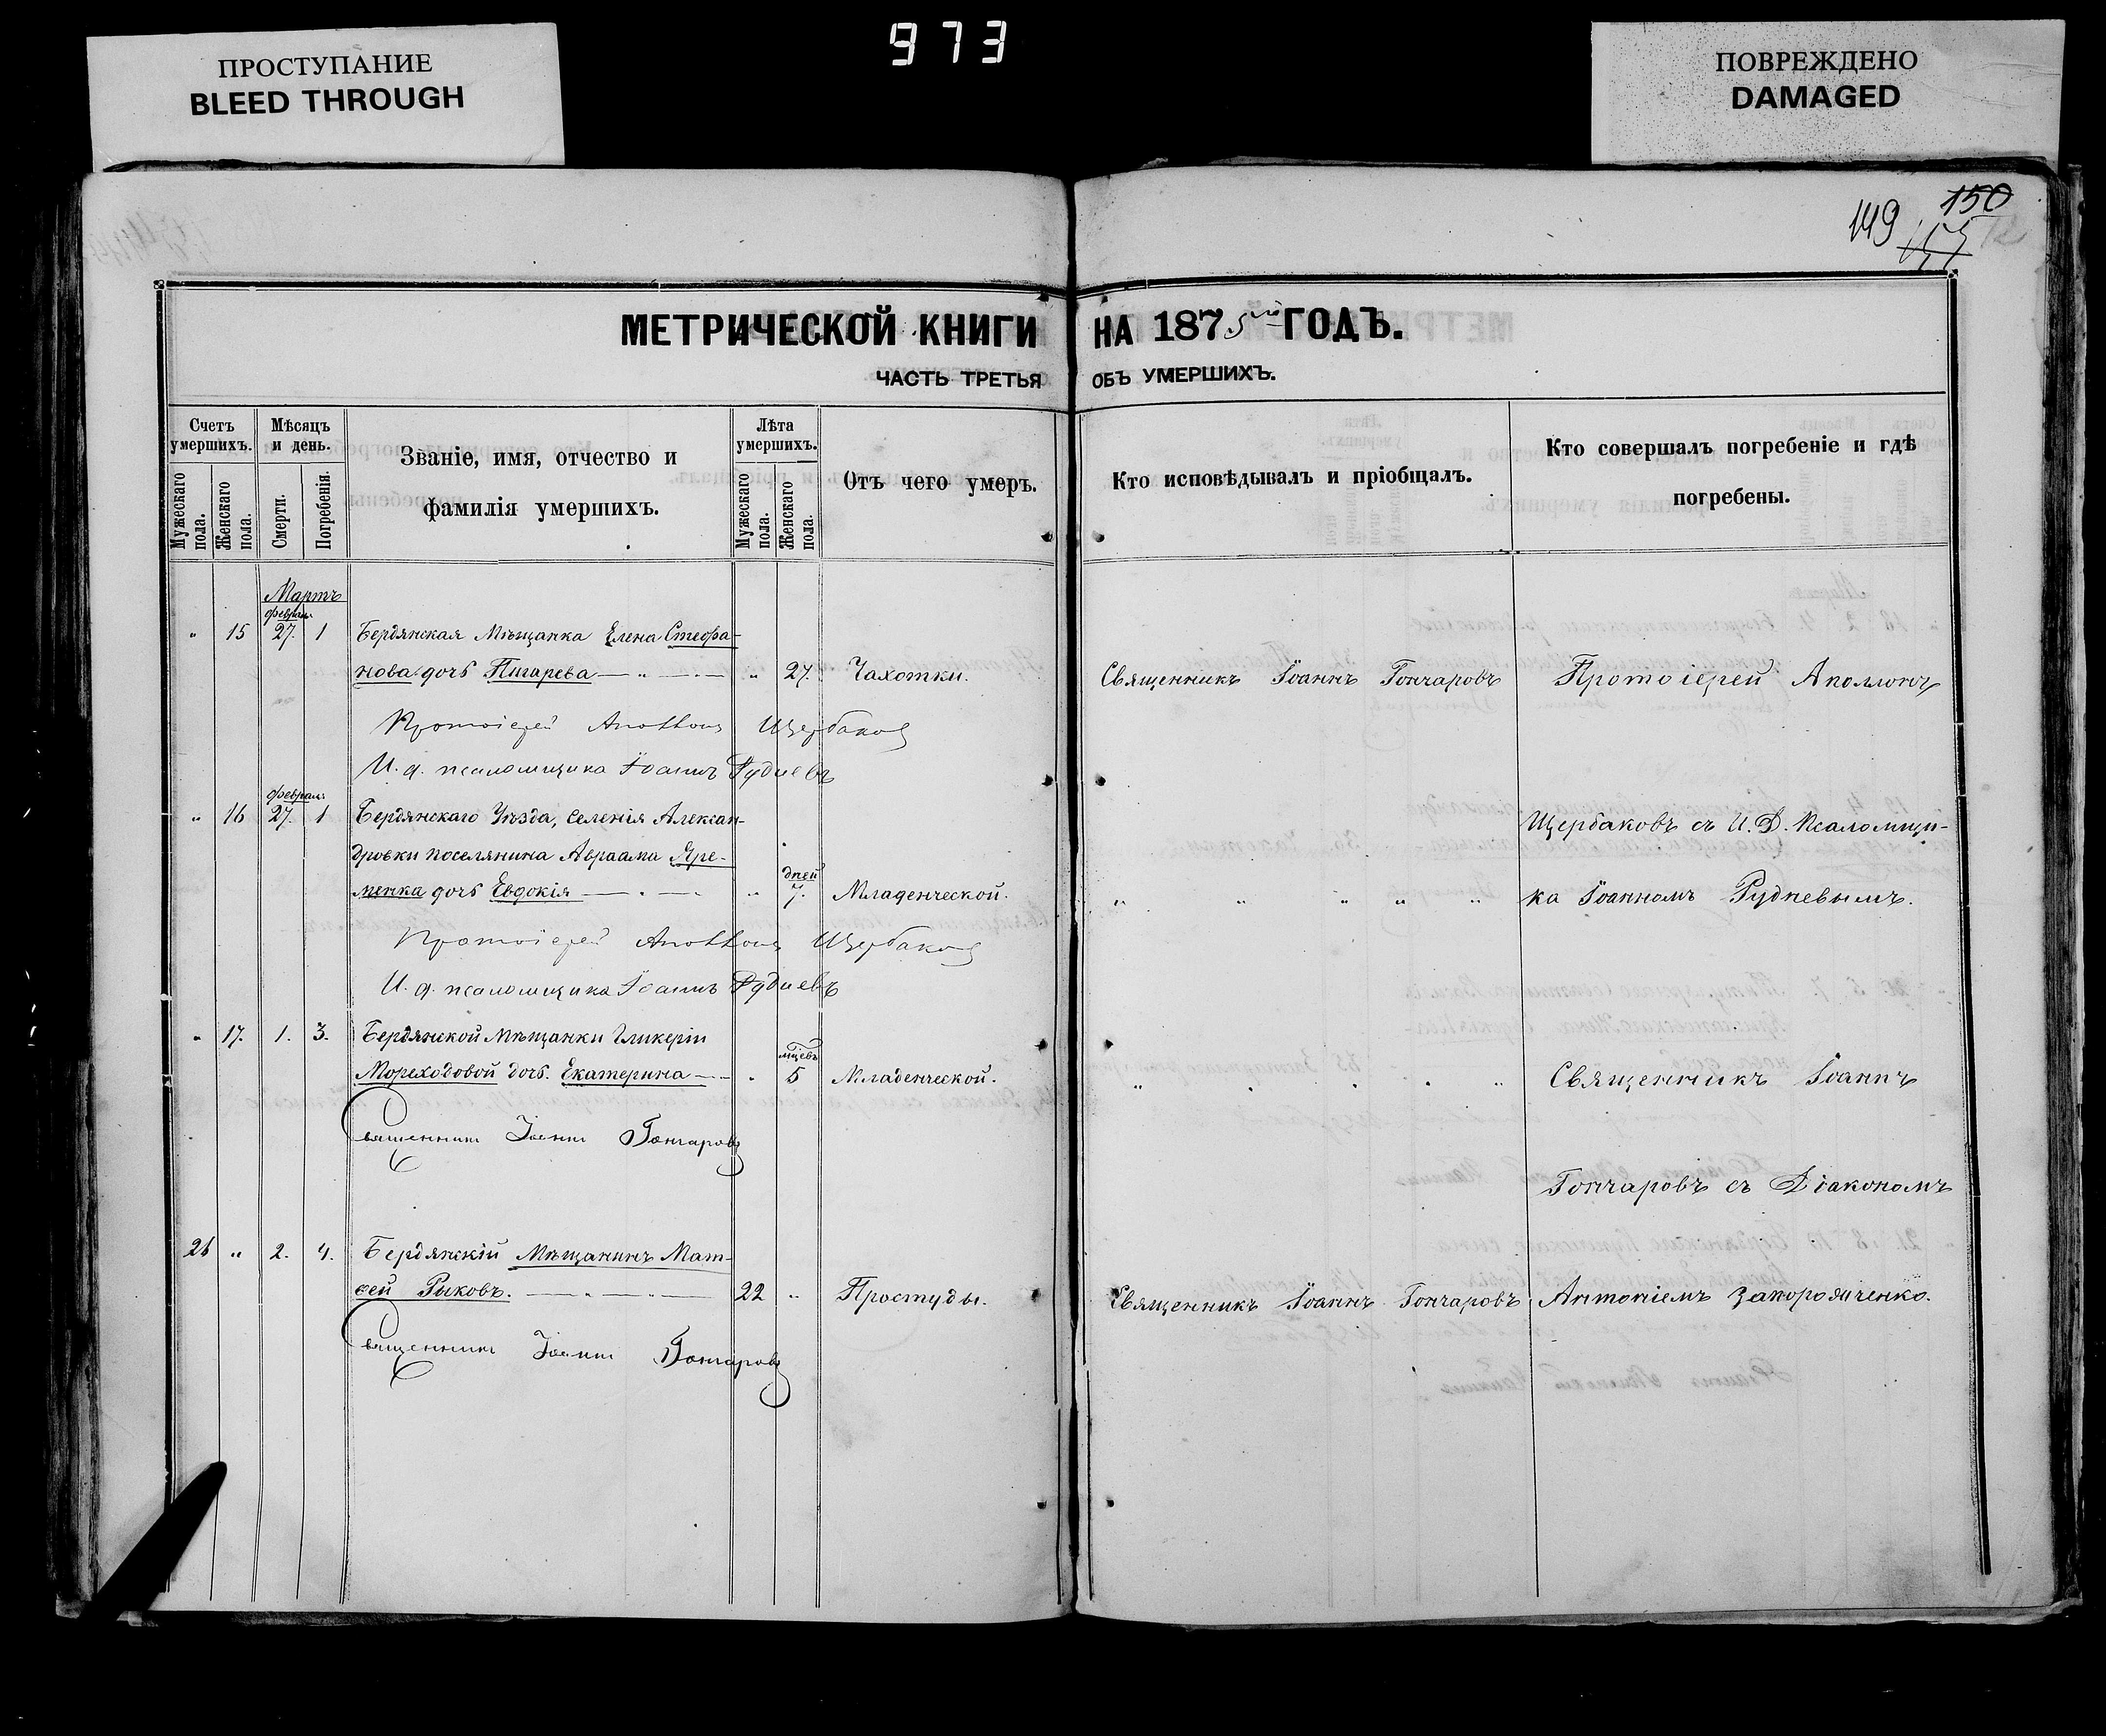 ПРОСТУПАНИЕ
BLEED THROUGH
973
ПОВРЕЖДЕНО
DAMAGED
149 150
МЕТРИЧЕСКОЙ КНИГИ НА 1875 ГОДЪ.
ЧАСТЬ ТРЕТЬЯ ОБЪ УМЕРШИХЪ.
Счетъ умершихъ.
Мужескаго пола.
Женскаго пола.
Мѣсяцъ и день.
Смерти.
Погребенія.
Званіе, имя, отчество и
фамилія умершихъ.
Лѣта умершихъ.
Мужескаго пола.
Женскаго пола.
Отъ чего умеръ.
Кто исповѣдывалъ и пріобщалъ.
Кто совершалъ погребеніе и гдѣ
погребены.
Мартъ
Феврал:
" 15 27. 1 Бердянская Мѣщанка Елена Стефа-
нова дочь Пигарева " 27. Чахотки. Священникъ Іоаннъ Гончаровъ Протоіерей Аполлонъ
Протоіерей Аполлонъ Щербаковъ
И. д. псаломщика Іоаннъ Рудневъ
Феврал:
" 16 27. 1 Бердянскаго Уѣзда, селенія Алексан- Щербаковъ съ И. Д. Псаломщи-
дровки поселянина Авраама Яре-
дней
менка дочь Евдокія " 7. Младенческой. " " " " " ка Іоанномъ Рудневымъ.
Протоіерей Аполлонъ Щербаковъ
И. д. псаломщика Іоаннъ Рудневъ
" 17. 1. 3. Бердянской Мѣщанки Гликеріи
мцевъ
Мореходовой дочь. Екатерина " 5 Младенческой. " " " " " Священникъ Іоаннъ
Священникъ Іоаннъ Гончаровъ
Гончаровъ съ Діакономъ
26 " 2. 4. Бердянскій Мѣщанинъ Мат-
ѳей Рыковъ. 22 " Простуды. Священникъ Іоаннъ Гончаровъ Антоніемъ Запорожченко.
Священникъ Іоаннъ Гончаровъ